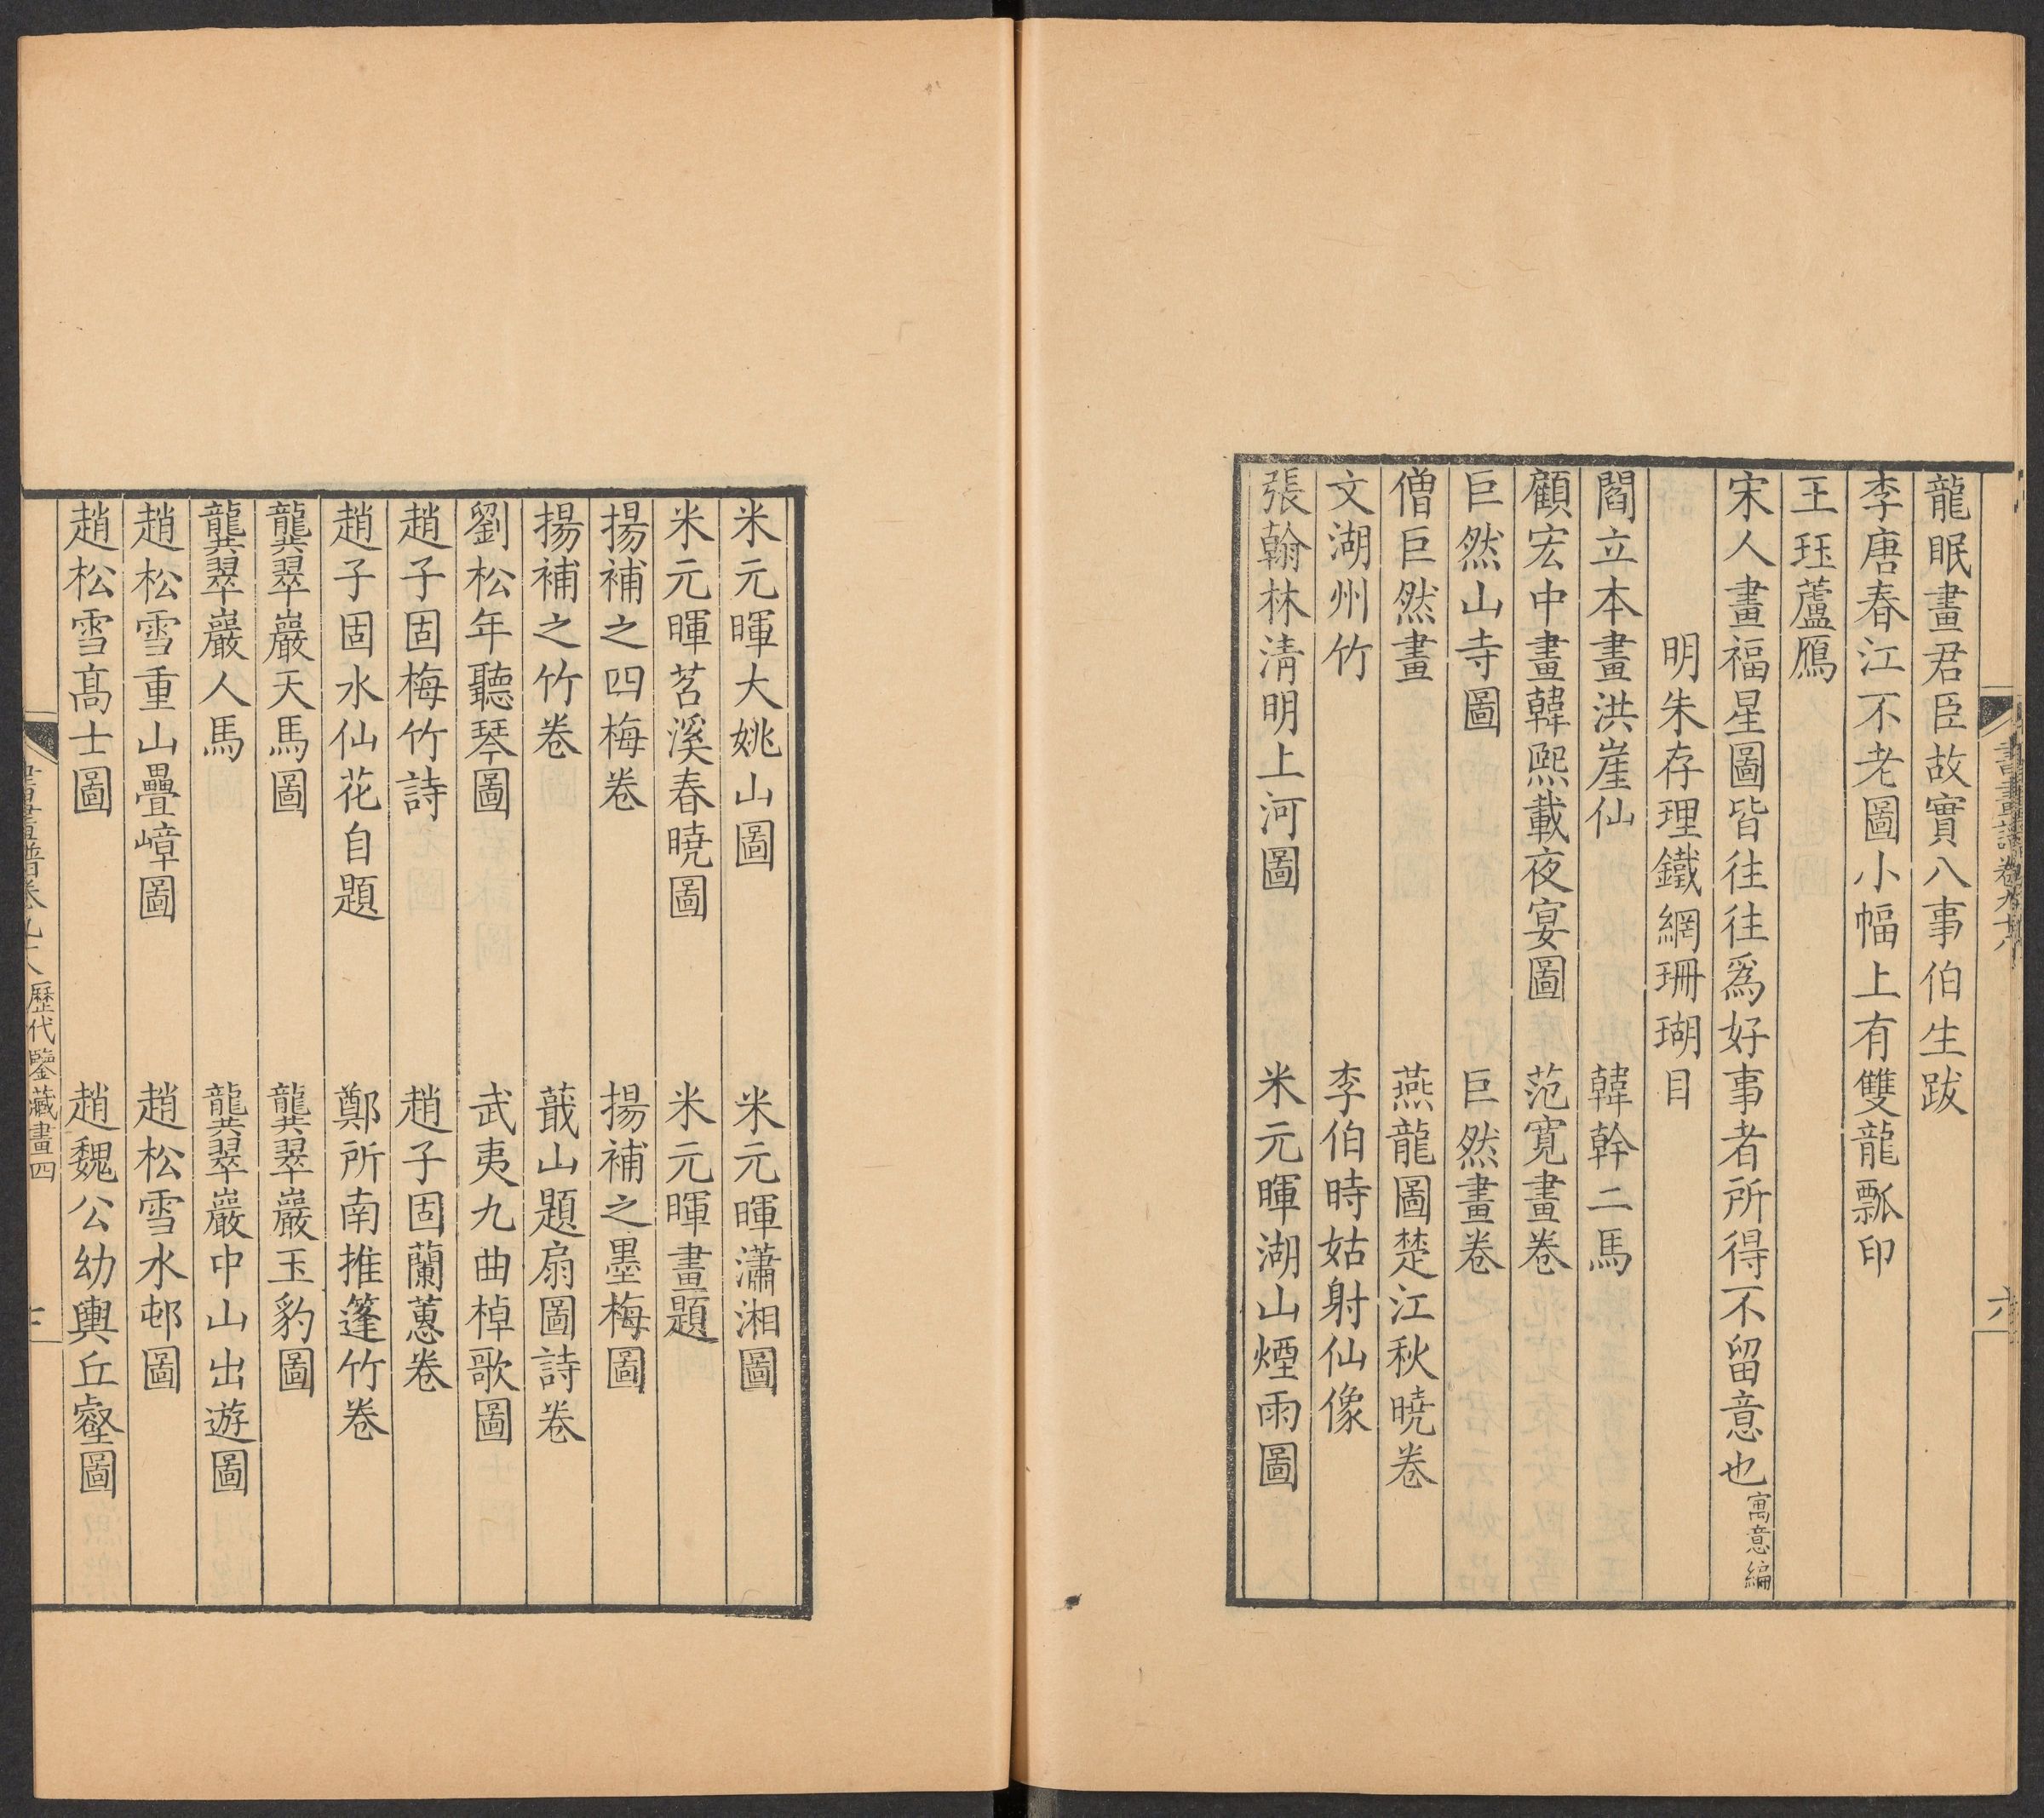 龍眠畫君臣故實八事伯生跋
李唐春江不老圖小幅上有雙龍瓢印
王珏蘆鴈
宋人畫福星圖皆往往爲好事者所得不留意也寓意編
明朱存理鐵網珊瑚目
閻立本畫洪崖仙　韓幹二馬
顧宏中畫韓熙載夜宴圖　范寬畫卷
巨然山寺圖　巨然畫卷
僧巨然畫　燕龍圖楚江秋曉卷
文湖州竹　李伯時姑射仙像
張翰林淸明上河圖　米元暉湖山煙雨圖
米元暉大姚山圖　米元暉瀟湘圖
米元暉苕溪春曉圖　米元暉畫題
揚補之四梅卷　揚補之墨梅圖
揚補之竹卷　蕺山題扇圖詩卷
劉松年聽琴圖　武夷九曲棹歌圖
趙子固梅竹詩　趙子固蘭蕙卷
趙子固水仙花自題　鄭所南推篷竹卷
龔翠巖天馬圖　龔翠巖玉豹圖
龔翠巖人馬　龔翠巖中山出遊圖
趙松雪重山疊嶂圖　趙松雪水邨圖
趙松雪高士圖　趙魏公幼輿丘壑圖
歷代鑒藏畫四